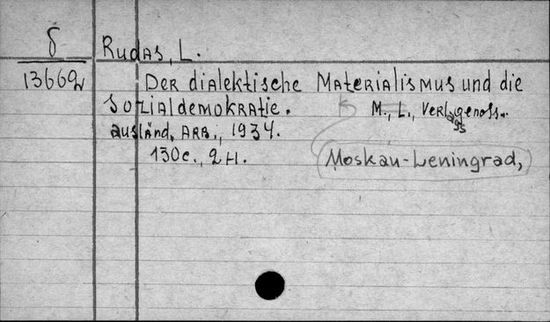 δ
13669
Rudas, L.
Der dialektische Materialismus und die
Sozialdemokratie. M., L., Verlagsgenoss.
ausländ. Arb., 1934.
130c., 2H.
Moskau-Leningrad,